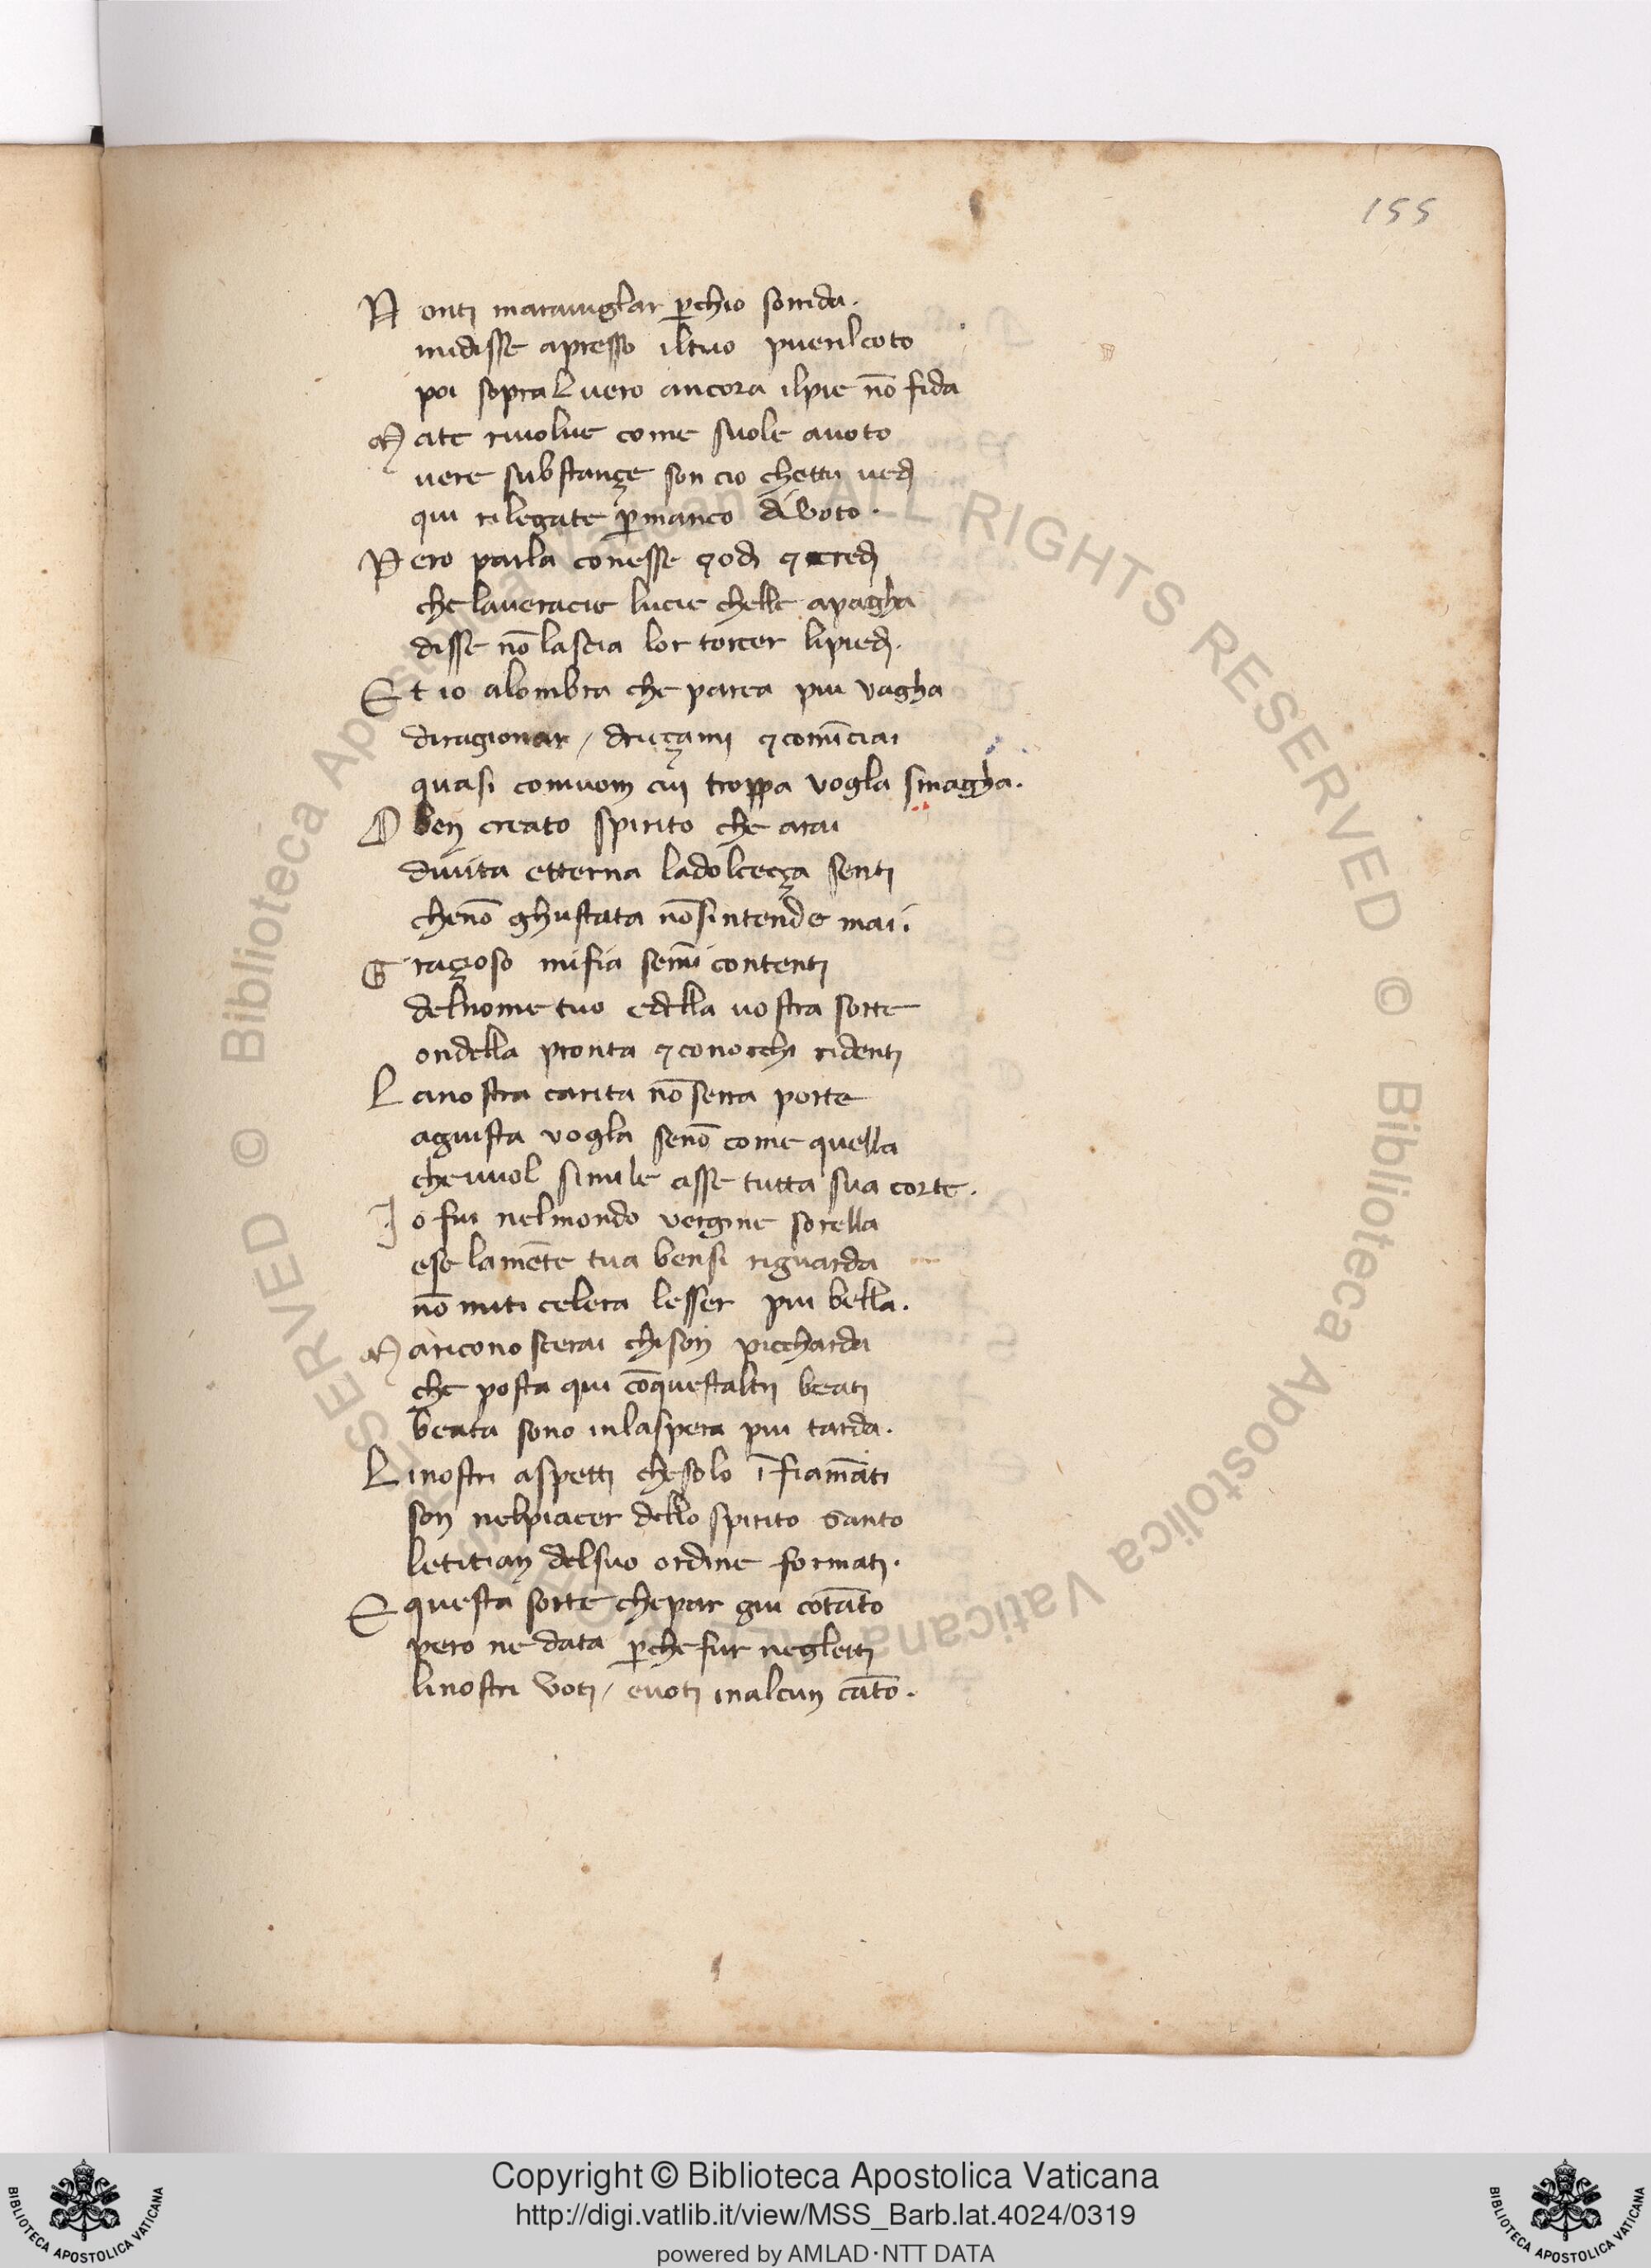 155
N onti marauiglar ꝑchio sorrida.
midisse apresso iltuo puerilcoto
poi sopral uero ancora ilpie nō fida
M ate riuolue come suole auoto
uere substançe son cio chettu uedj
qui rilegate ꝑmanco diuoto.
P ero parla conesse ⁊ odj ⁊ credj
che laueracie lucie chelle apagha
disse nō lascia lor torcer lipiedj.
E t io alombra che parea piu vagha
diragionar / driçami ⁊ comīciai
quasi comuom cuj troppa vogla smagha.
O ben creato spirito che arai
diuita etterna ladolceça sentj
chenō ghustata nōsintende mai.
G raçioso mifia semi contentj
delnome tuo edella uostra sorte
ondella pronta ⁊ conocchi ridentj
L anostra carita nō serra porte
agiusta vogla senō come quella
cheuuol simile asse tutta sua corte.
I o fui nelmondo vergine sorella
ese lamēte tua bensi riguarda
nō miti celera lesser piu bella.
M ariconoscerai chison piccharda
che posta qui cōquestaltrj beatj
beata sono inlaspera piu tarda.
L inostri aspettj chesolo īfiamāti
son nelpiacer dello spirito santo
letitian delsuo ordine formatj.
E questa sorte chepar giu cotāto
pero ne data ꝑche fur neglettj
linostri voti / euotj inalcun cāto.
Copyright © Biblioteca Apostolica Vaticana
http://digi.vatlib.it/view/MSS_Barb.lat.4024/0319
powered by AMLAD·NTT DATA
BIBLIOTECA APOSTOLICA VATICANA
BIBLIOTECA APOSTOLICA VATICANA
© Biblioteca Apostolica Vaticana ALL RIGHTS RESERVED
© Biblioteca Apostolica Vaticana ALL RIGHTS RESERVED